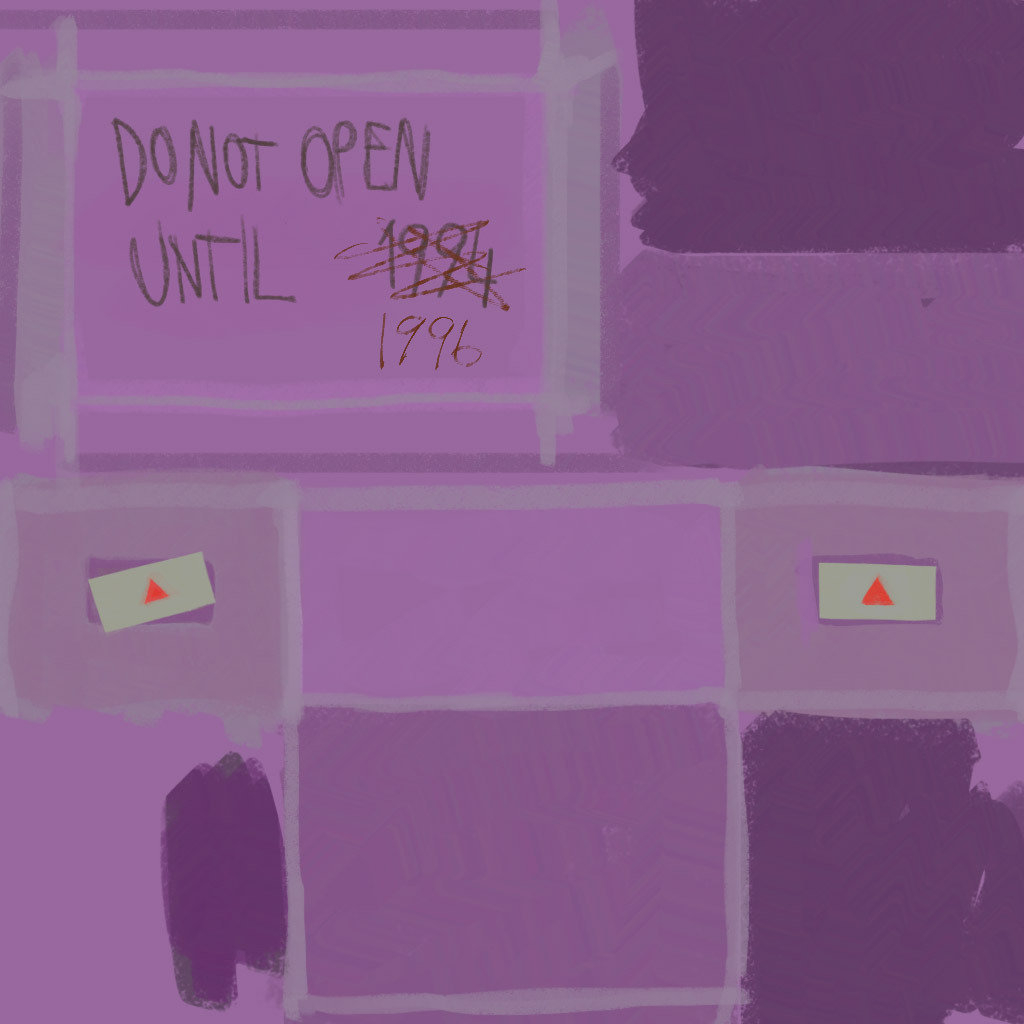 DO NOT OPEN
UNTIL 1994
1996